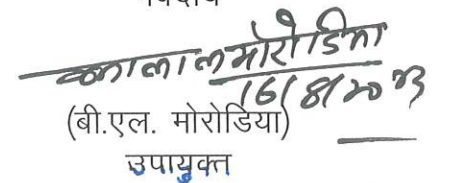 मोरोडिया
16/8/2023
(बी.एल. मोरोडिया)
उपायुक्त